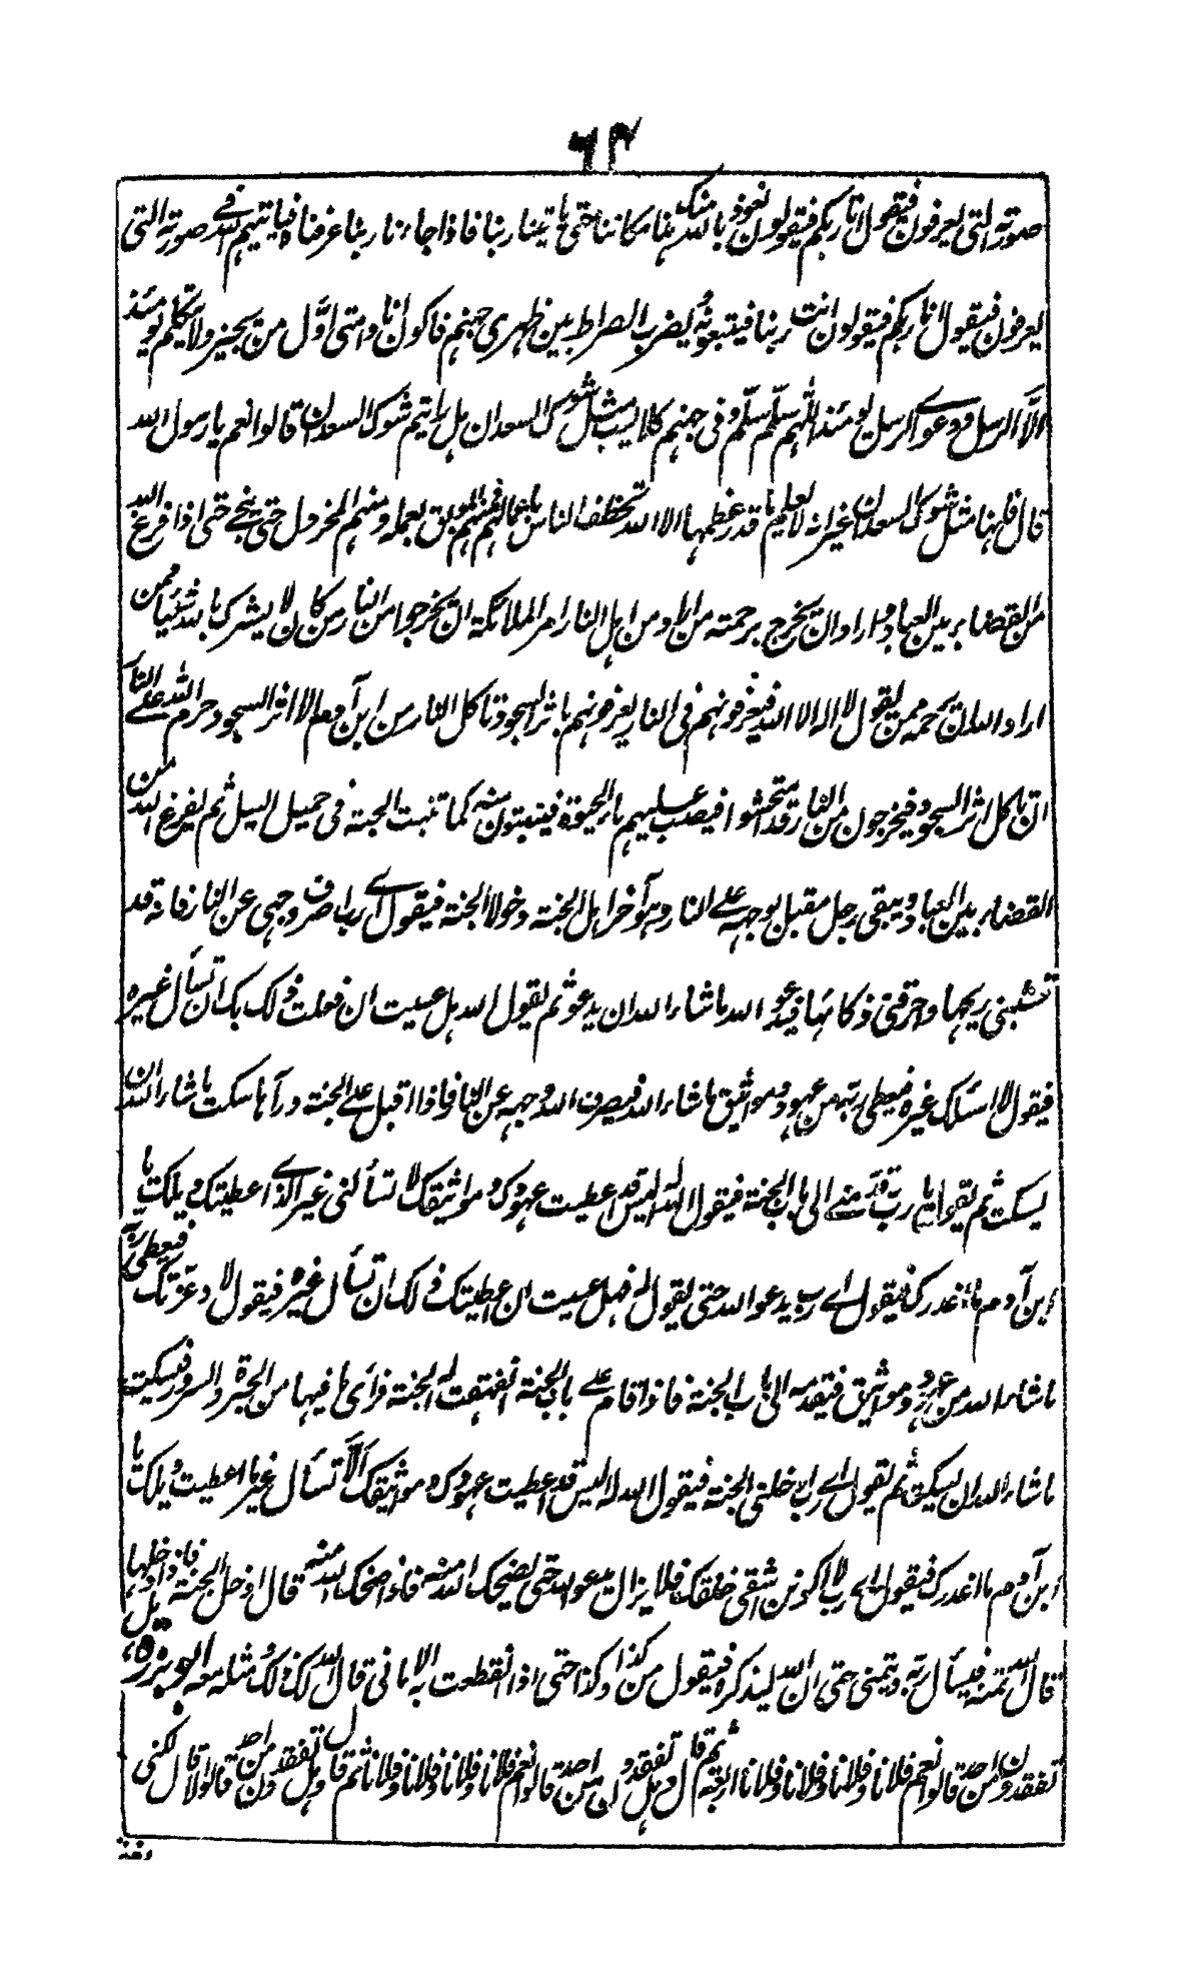 ٦٣
صورته التى يعرفون فيقول انا ربكم فيقولون نعوذ بالله منك هذا مكاننا حتى ياتينا ربنا فاذا جاءنا ربنا عرفناه فياتيهم الله فى صورته التى
يعرفون فيقول انا ربكم فيقولون انت ربنا فيتبعونه ويضرب الصراط بين ظهرى جهنم فاكون انا وامتى اول من يجيز ولا يتكلم يومئذ
الا الرسل ودعوى الرسل يومئذ اللهم سلّم سلّم وفى جهنم كلاليب مثل شوك السعدان هل رايتم شوك السعدان قالوا نعم يا رسول الله
قال فانها مثل شوك السعدان غير انه لا يعلم ما قدر عظمها الا الله تخطف الناس باعمالهم فمنهم الموبق بعمله ومنهم المخردل حتى ينجى حتى اذا فرغ الله
من القضاء بين العباد واراد ان يخرج برحمته من اراد من اهل النار امر الملائكة ان يخرجوا من النار من كان لا يشرك بالله شيئا ممن
اراد الله ان يرحمه ممن يقول لا اله الا الله فيعرفونهم فى النار يعرفونهم باثر السجود تاكل النار من ابن آدم الا اثر السجود حرم الله على النار
ان تاكل اثر السجود فيخرجون من النار قد امتحشوا فيصب عليهم ماء الحيوة فينبتون منه كما تنبت الحبة فى حميل السيل ثم يفرغ الله من
القضاء بين العباد ويبقى رجل مقبل بوجهه على النار وهو آخر اهل الجنة دخولا الجنة فيقول اى رب اصرف وجهى عن النار فانه قد
قشبنى ريحها واحرقنى ذكائها فيدعو الله ما شاء الله ان يدعو ثم يقول الله هل عسيت ان فعلت ذلك بك ان تسأل غيره
فيقول لا اسئلك غيره فيعطى ربه من عهود ومواثيق ما شاء الله فيصرف الله وجهه عن النار فاذا اقبل على الجنة ورآها سكت ما شاء الله ان
يسكت ثم يقول اى رب قدمنى الى باب الجنة فيقول الله له اليس قد اعطيت عهودك ومواثيقك لا تسألنى غير الذى اعطيتك ويلك يا
ابن آدم ما اغدرك فيقول اى رب يدعو الله حتى يقول له فهل عسيت ان اعطيتك ذلك ان تسأل غيره فيقول لا وعزتك فيعطى ربه
ما شاء الله من عهود ومواثيق فيقدمه الى باب الجنة فاذا قام على باب الجنة انفهقت له الجنة فرأى ما فيها من الحبرة والسرور فيسكت
ما شاء الله ان يسكت ثم يقول اى رب ادخلنى الجنة فيقول الله له اليس قد اعطيت عهودك ومواثيقك الّا تسأل غير ما اعطيت ويلك يا
ابن آدم ما اغدرك فيقول اى رب لا اكونن اشقى خلقك فلا يزال يدعو الله حتى يضحك الله منه فاذا ضحك الله منه قال ادخل الجنة فاذا دخلها
قال الله له تمنه فيسأل ربه ويتمنى حتى ان الله ليذكره فيقول من كذا وكذا حتى اذا انقطعت به الامانى قال الله لك ذلك ومثله معه ابو برزة هل
تفقدون من احد قالوا نعم فلانا وفلانا وفلانا وفلانا اربعة ثم قال هل تفقدون من احد قالوا نعم فلانا وفلانا وفلانا وفلانا ثم قال هل تفقدون من احد قالوا لا قال لكنى